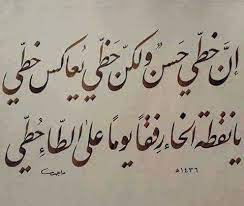 إنَّ خطّي حَسَنٌ ولكنّ حَظّي يُعاكس خطّي
يا نقطة الخاء رفقًا يومًا على الطّاء حُطّي
١٤٣٦ھ